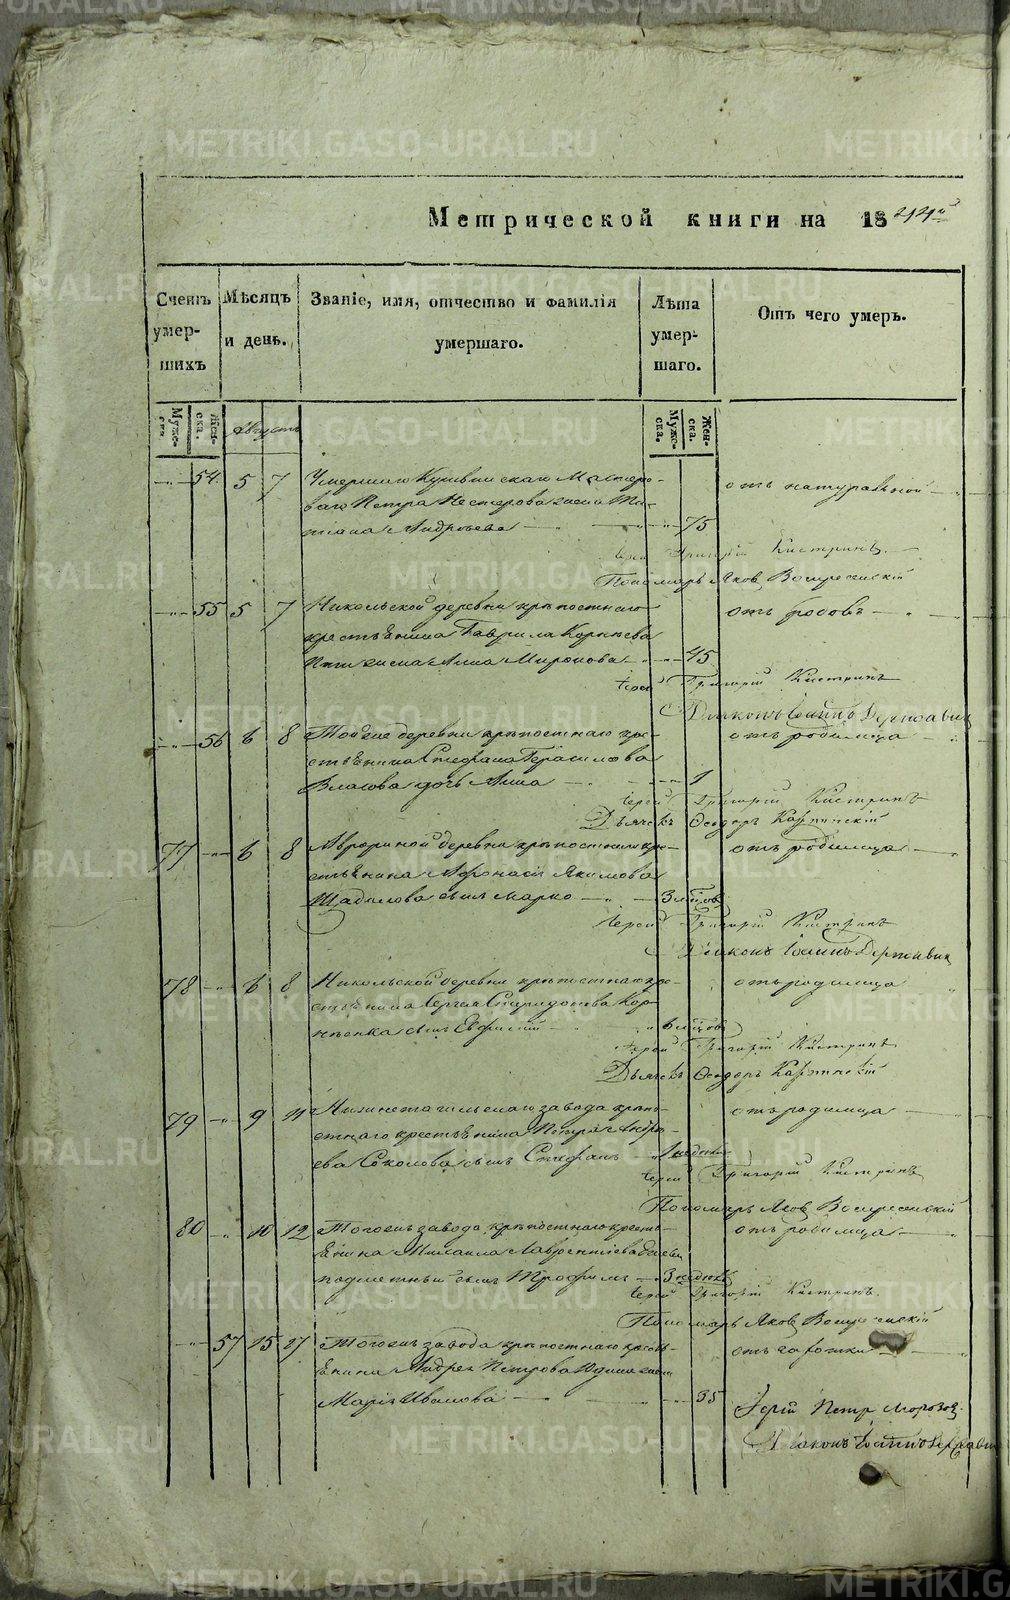 METRIKI.GASO-URAL.RU
Метрической книги на 1844й
Счетъ умер-шихъ
Мѣсяцъ и день.
Званіе, имя, отчество и фамилія умершаго.
Лѣта умер-шаго.
Отъ чего умеръ.
Муже-ска. Жен-ска. Августъ Муже-ска. Жен-ска.
54 5 7 Умершаго Кушвинскаго Мастеро-
ваго Петра Нестерова жена Та-
тиана Андреева 75 отъ натуральной
Іерей Григорій Кистринъ
Пономарь Яковъ Воскресенскій
55 5 7 Никольской деревни крѣпостнаго
крестьянина Гаврила Корнѣева
жена Анна Миронова 45
Іерей Григорій Кистринъ
Діаконъ Іоаннъ Державинъ
56 6 8 Тойже деревни крѣпостнаго кре-
стьянина Стефана Герасимова
Власова дочь Анна 1 отъ родимца
Іерей Григорій Кистринъ
Дьячекъ Ѳеодоръ Карпинскій
77 6 8 Аврориной деревни крѣпостнаго кре-
стьянина Афонасія Якимова
сынъ Марко 3 отъ родимца
Іерей Григорій Кистринъ
Діаконъ Іоаннъ Державинъ
78 6 8 Никольской деревни крѣпостнаго кре-
стьянина Сергея Спиридонова Кор-
сынъ Евфимій отъ родимца
Іерей Григорій Кистринъ
Дьячекъ Ѳеодоръ Карпинскій
79 9 11 Нижнетагильскаго завода крѣпо-
стнаго крестьянина Петра Андре-
ева Соколова сынъ Стефанъ отъ родимца
Іерей Григорій Кистринъ
Пономарь Яковъ Воскресенскій
80 10 12 Тогожъ завода крѣпостнаго кресть-
янина Михаила Лаврентіева
сынъ Трофимъ 3 недѣль отъ родимца
Іерей Григорій Кистринъ
Пономарь Яковъ Воскресенскій
57 15 17 Тогожъ завода крѣпостнаго кресть-
янина Андрея Петрова жена
Марія Иванова 35 отъ чахотки
Іерей Петр Морозов
Діаконъ Іоаннъ Державинъ